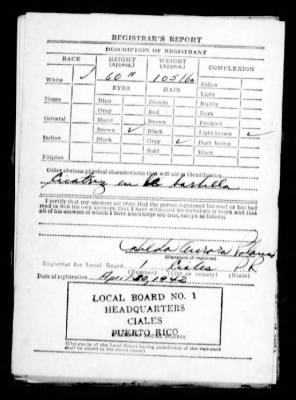 REGISTRAR'S REPORT
DESCRIPTION OF REGISTRANT
RACE HEIGHT (Approx.) WEIGHT (Approx.) COMPLEXION
White ✓ 60" 105 lbs Sallow
EYES HAIR Light
Negro Blue Blonde Ruddy
Gray Red Dark
Oriental Hazel Brown Freckled
Brown ✓ Black Light brown ✓
Indian Black Gray ✓ Dark brown
Bald Black
Filipino
Other obvious physical characteristics that will aid in identification
Cicatriz en la barbilla
I certify that my answers are true; that the person registered has read or has had
read to him his own answers; that I have witnessed his signature or mark and that
all of his answers of which I have knowledge are true, except as follows:
Aurora
(Signature of registrar)
Registrar for Local Board 1 Ciales P.R.
(Number) (City or county) (State)
Date of registration April 26, 1942
LOCAL BOARD NO. 1
HEADQUARTERS
CIALES
PUERTO RICO
(The stamp of the Local Board having jurisdiction of the registrant
shall be placed in the above space)